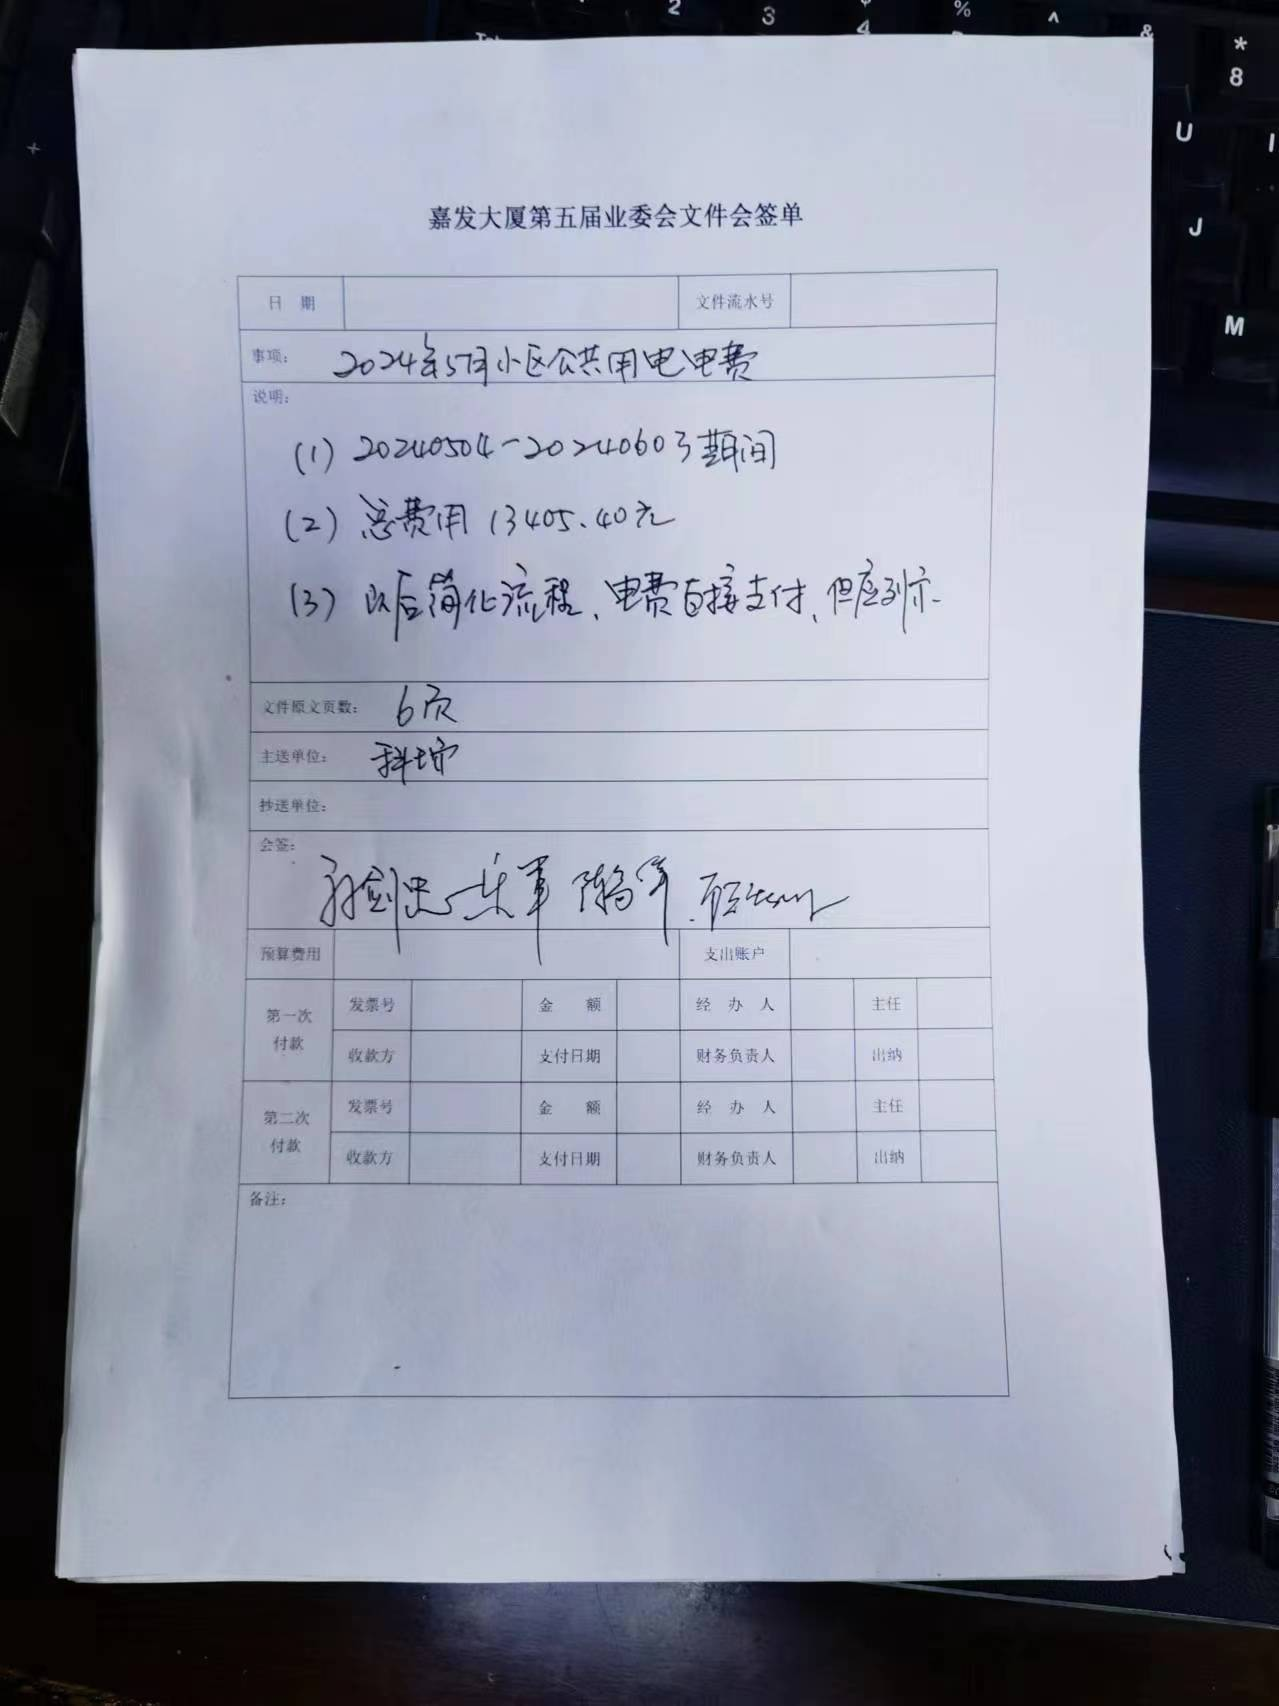 嘉发大厦第五届业委会文件会签单
日 期 文件流水号
事项： 2024年5月小区公共用电电费
说明：
(1) 20240504-20240603期间
(2) 总费用13405.40元
(3) 以后简化流程、电费直接支付、但应列示.
文件原文页数： 6页
主送单位： 科瑞
抄送单位：
会签：
预算费用 支出账户
第一次付款 发票号 金 额 经 办 人 主任
收款方 支付日期 财务负责人 出纳
第二次付款 发票号 金 额 经 办 人 主任
收款方 支付日期 财务负责人 出纳
备注：
2 3 $ 4 % ^ & * 8
U I
J
M